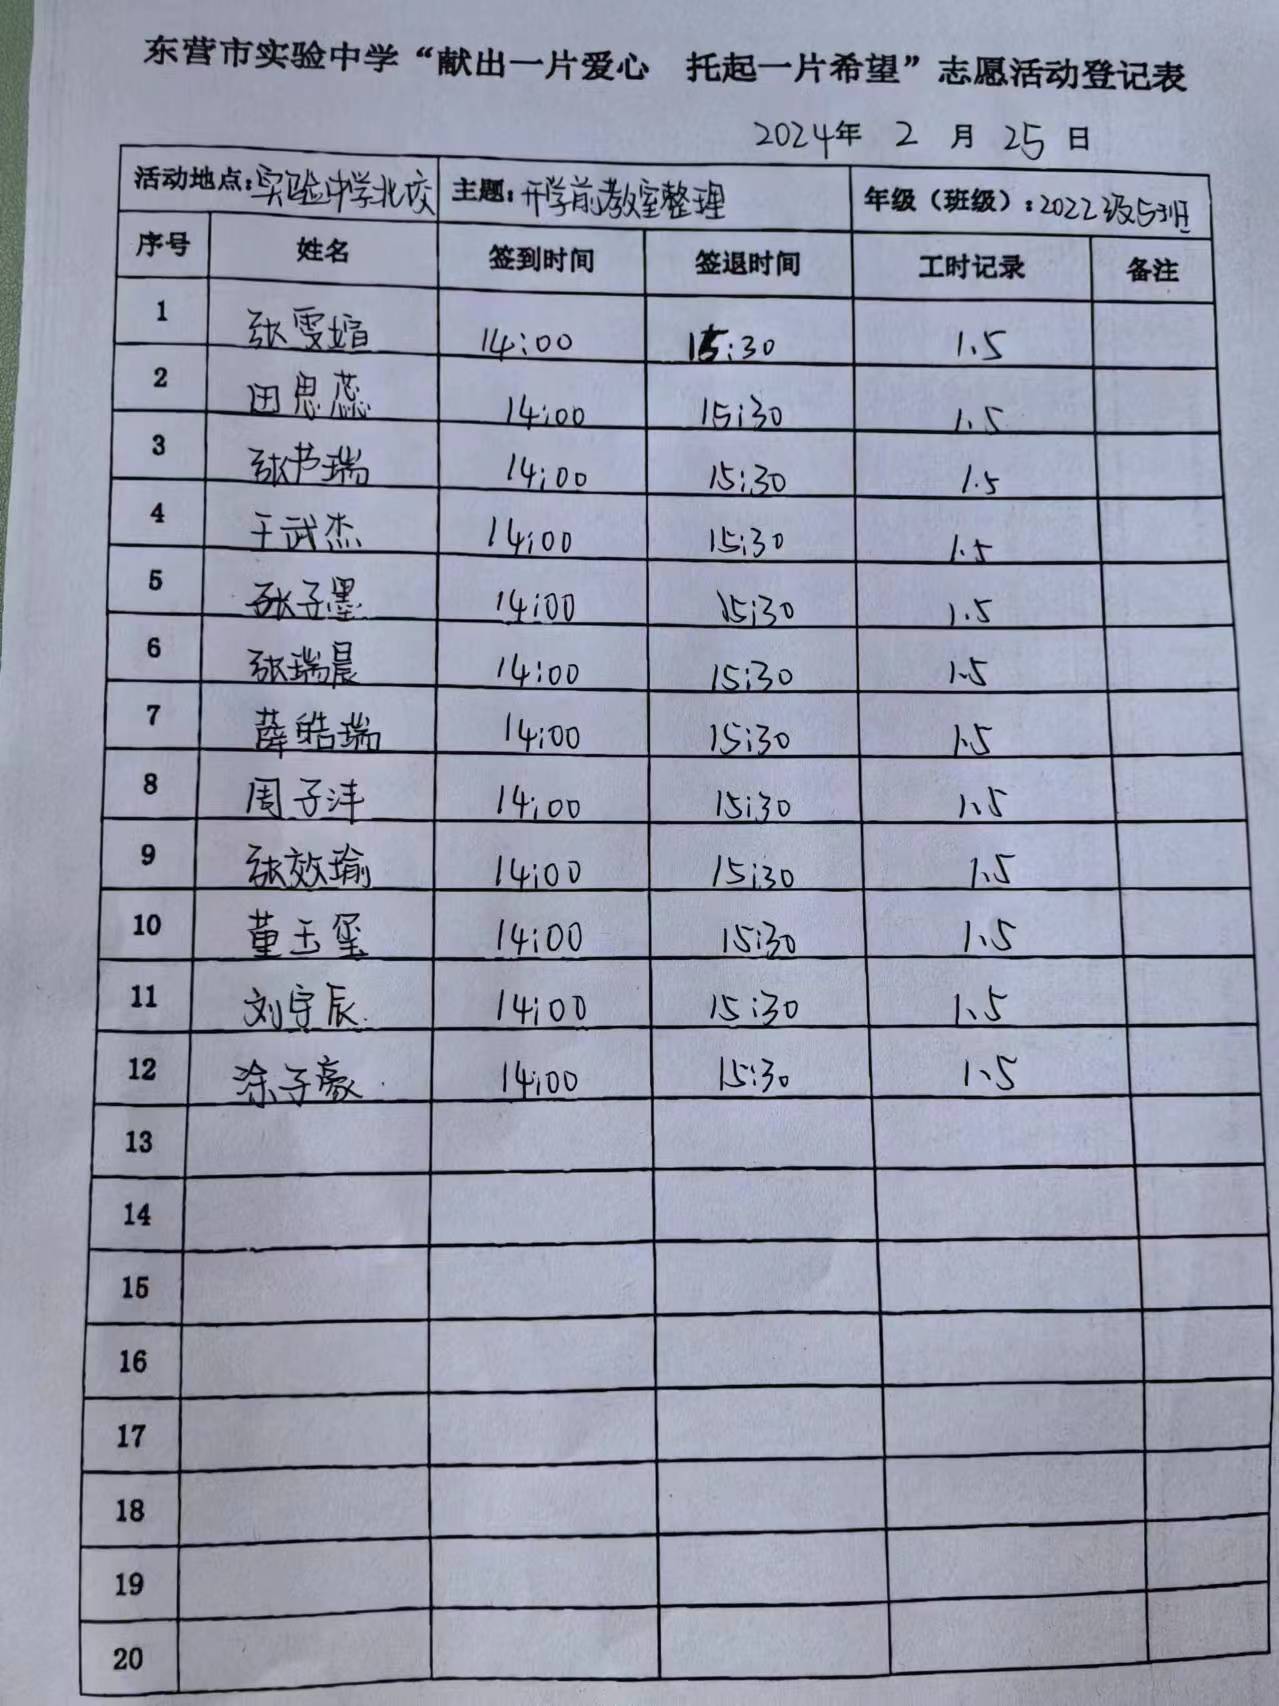 东营市实验中学“献出一片爱心 托起一片希望”志愿活动登记表
2024年 2 月 25 日
活动地点：实验中学北校 主题：开学前教室整理 年级（班级）：2022级5班
序号 姓名 签到时间 签退时间 工时记录 备注
1 张雯暄 14:00 15:30 1.5
2 田思蕊 14:00 15:30 1.5
3 张书瑞 14:00 15:30 1.5
4 王武杰 14:00 15:30 1.5
5 张子墨 14:00 15:30 1.5
6 张瑞晨 14:00 15:30 1.5
7 薛皓瑞 14:00 15:30 1.5
8 周子沣 14:00 15:30 1.5
9 张效瑜 14:00 15:30 1.5
10 董玉玺 14:00 15:30 1.5
11 刘宇辰 14:00 15:30 1.5
12 涂子豪 14:00 15:30 1.5
13
14
15
16
17
18
19
20